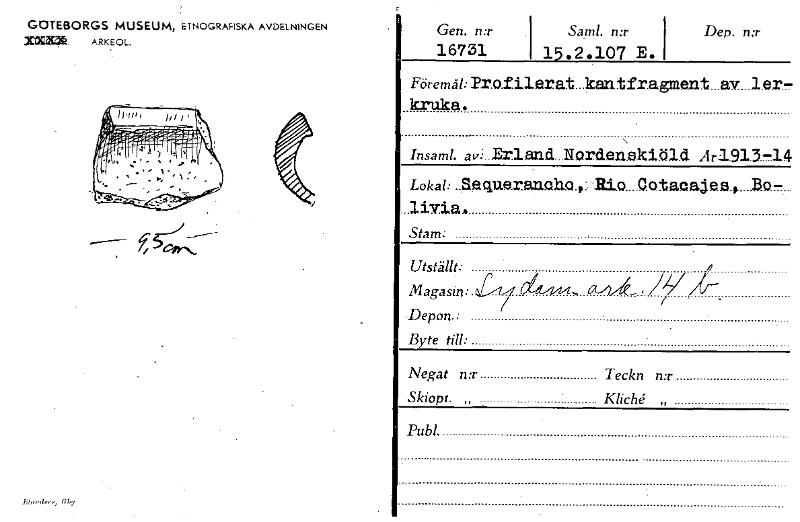 GÖTEBORGS MUSEUM, ETNOGRAFISKA AVDELNINGEN
XXXX ARKEOL.
9,5cm
Elanders, Gbg
Gen. n:r Saml. n:r Dep. n:r
16731 15.2.107 E.
Föremål: Profilerat kantfragment av ler-
kruka.
Insaml. av: Erland Nordenskiöld År 1913-14
Lokal: Sequerancho, Rio Cotacajes, Bo-
livia.
Stam:
Utställt:
Magasin: Sydam ark. 14 b
Depon.:
Byte till:
Negat n:r Teckn n:r
Skiopt. „ Kliché „
Publ.